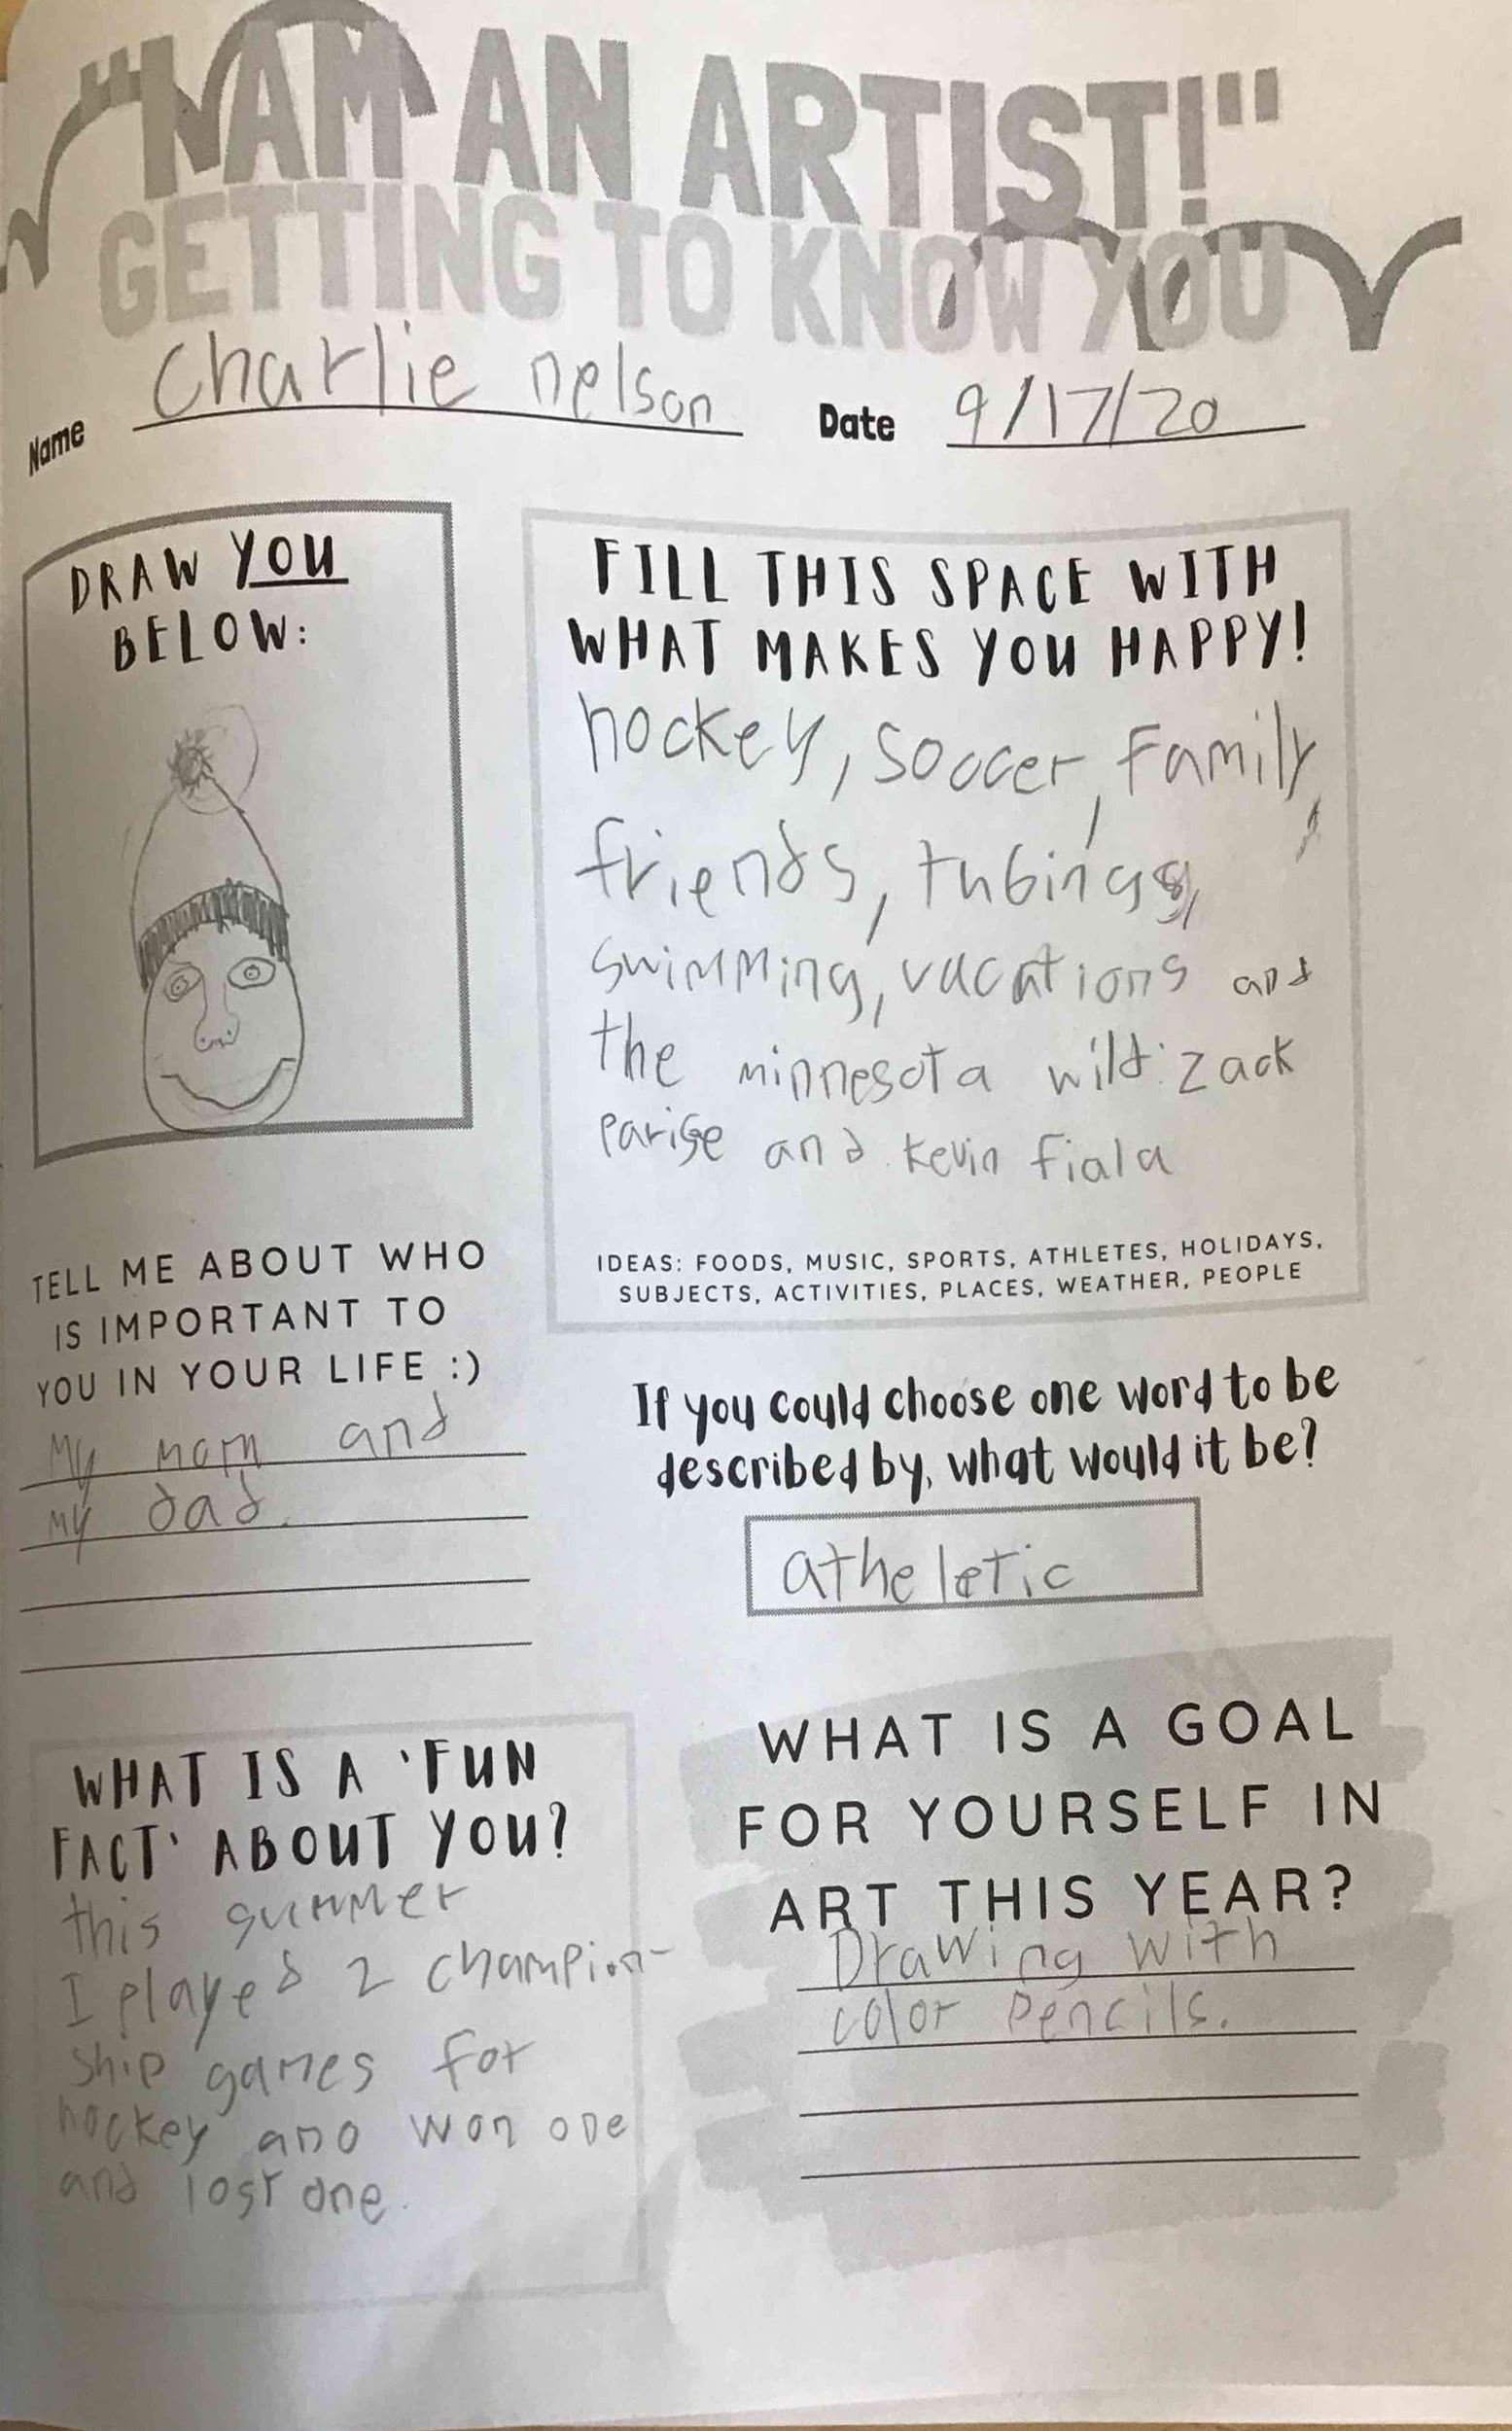 "I AM AN ARTIST!"
GETTING TO KNOW YOU
Name Charlie nelson Date 9/17/20
DRAW YOU
BELOW:
FILL THIS SPACE WITH
WHAT MAKES YOU HAPPY!
hockey, soccer, Family,
friends, tubing,
swimming, vacations and
the minnesota wild: zack
Parise and Kevin fiala
IDEAS: FOODS, MUSIC, SPORTS, ATHLETES, HOLIDAYS,
SUBJECTS, ACTIVITIES, PLACES, WEATHER, PEOPLE
TELL ME ABOUT WHO
IS IMPORTANT TO
YOU IN YOUR LIFE :)
My mom and
my dad.
If you could choose one word to be
described by, what would it be?
atheletic
WHAT IS A 'FUN
FACT' ABOUT YOU?
this summer
I played 2 champion-
ship games for
hockey and won one
and lost one.
WHAT IS A GOAL
FOR YOURSELF IN
ART THIS YEAR?
Drawing with
color pencils.